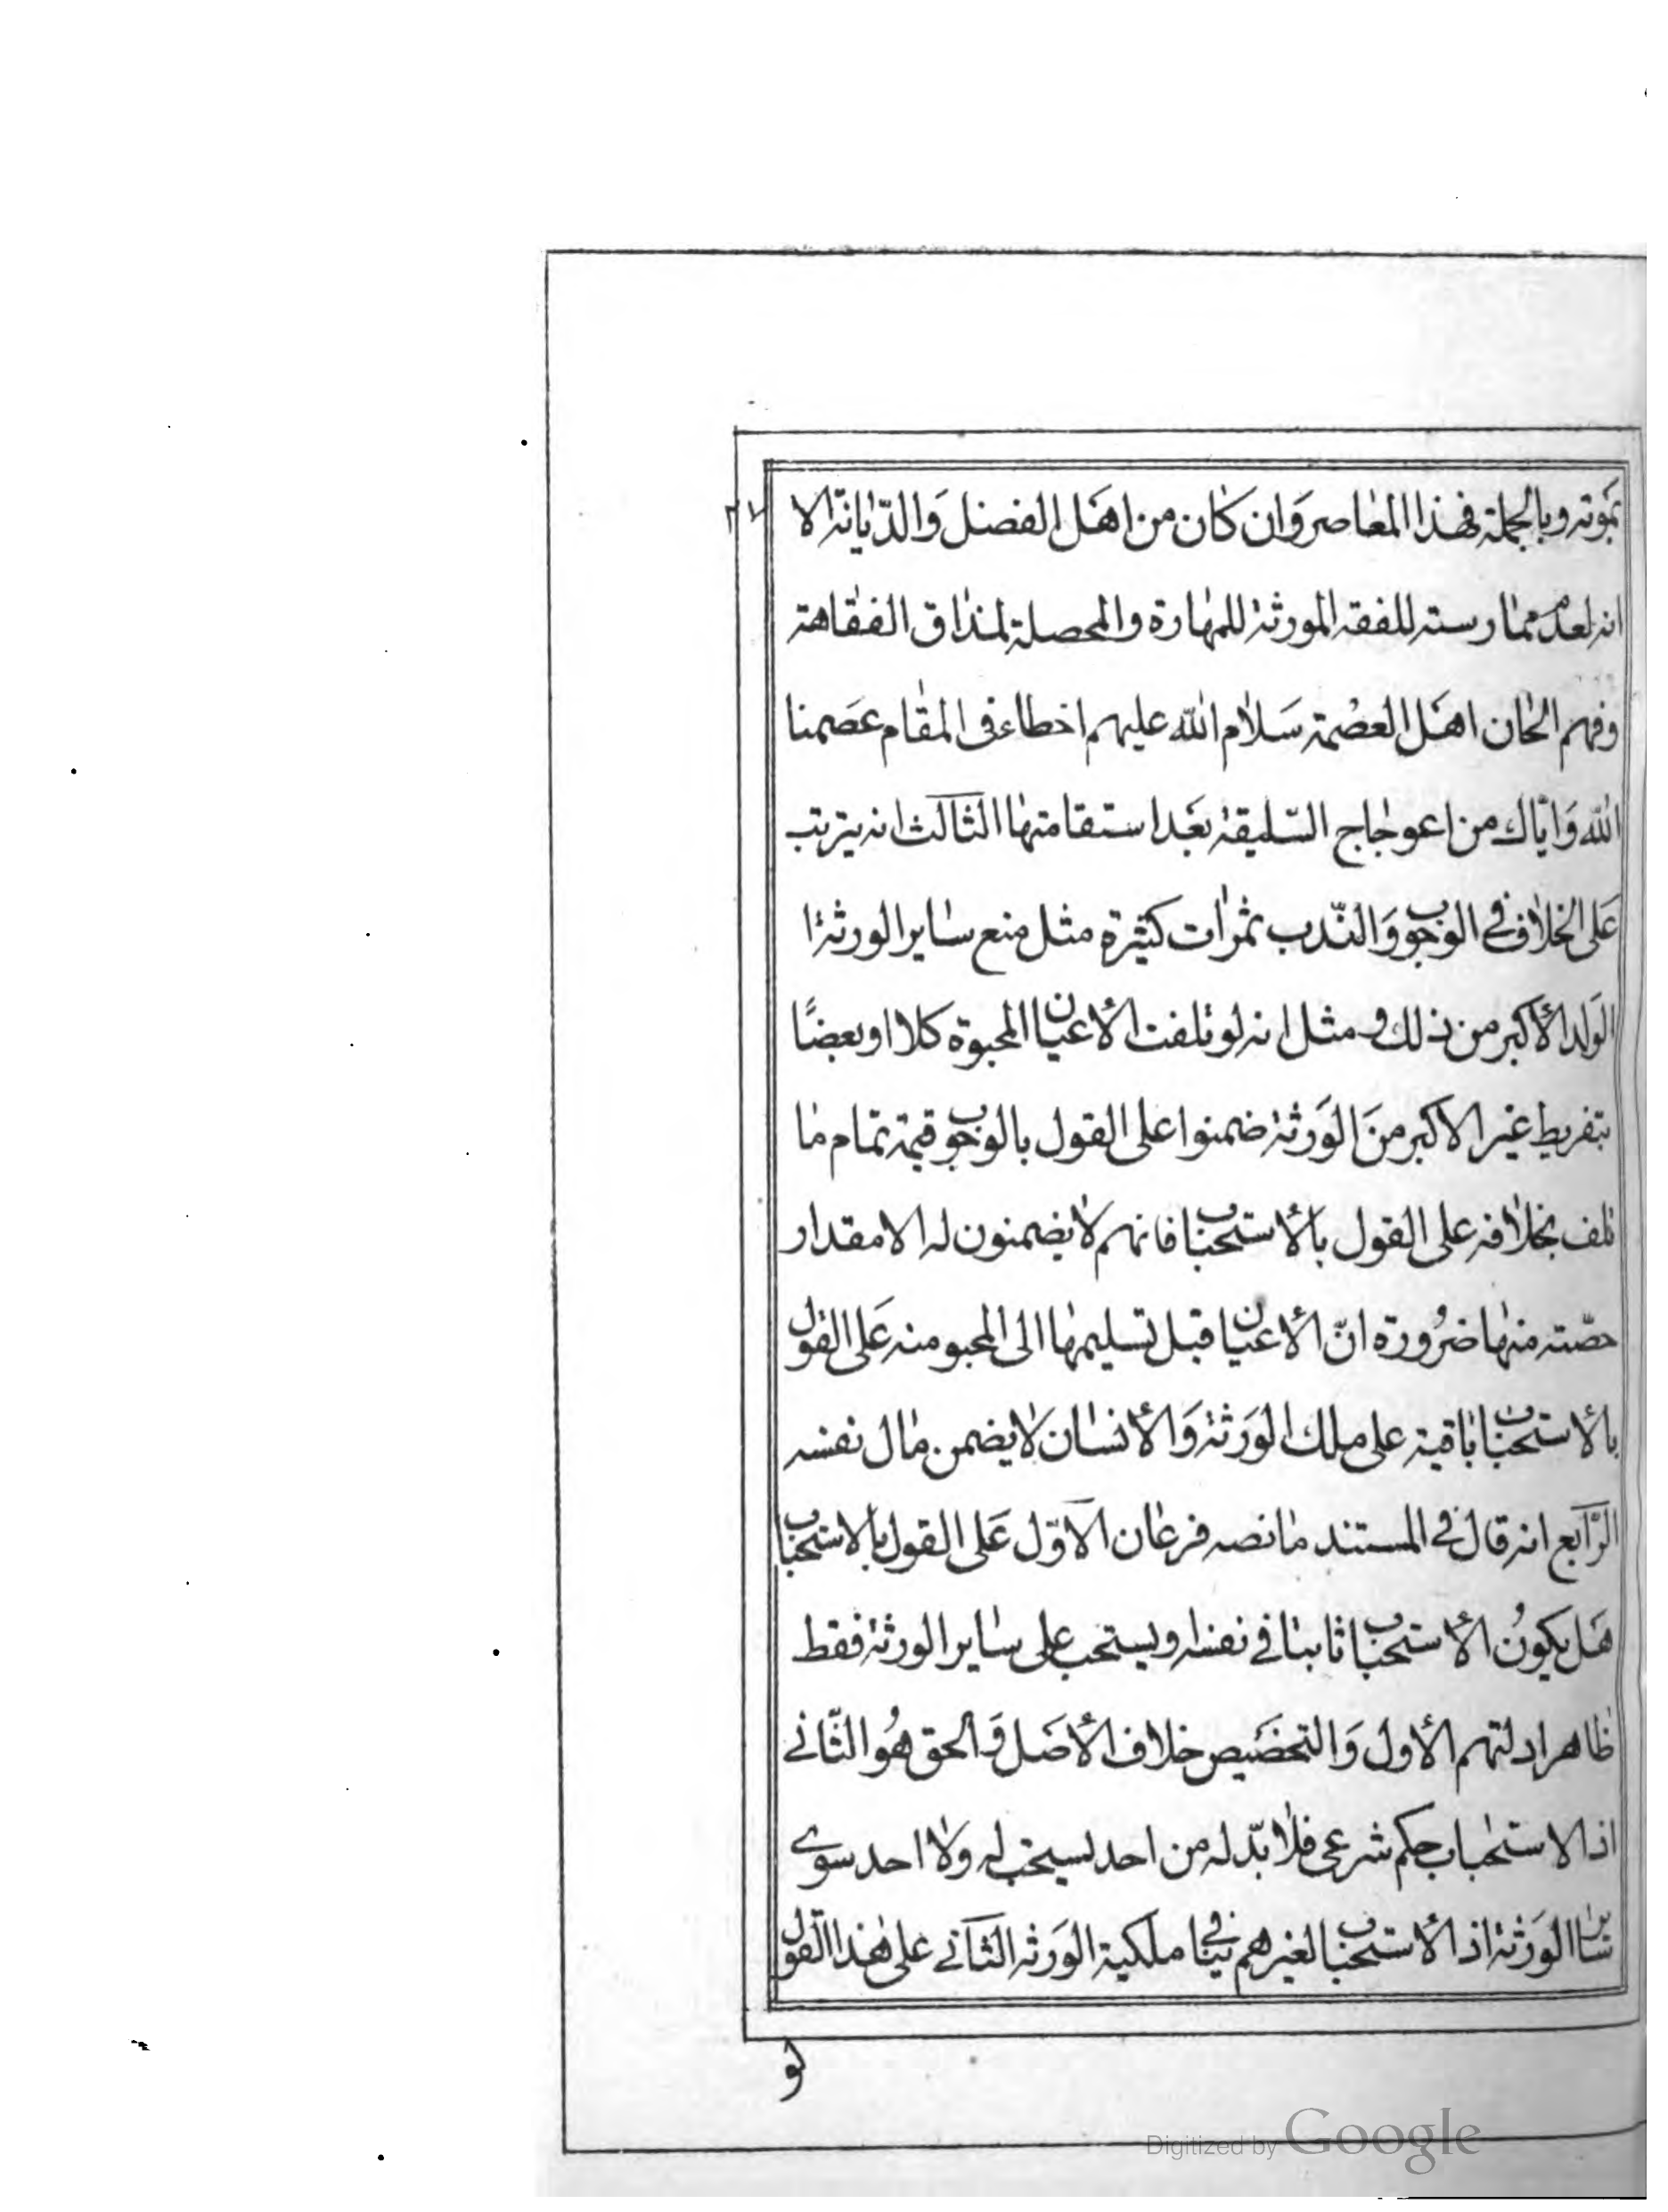 بموته وبالجملة فهذا المعاصر وان كان من اهل الفضل والديانة الا
انه لعدم ممارسته للفقه المورثة للمهارة والمحصلة لمذاق الفقاهة
وفهم الحان اهل العصمة سلام الله عليهم اخطاء في المقام عصمنا
الله واياك من اعوجاج السليقة بعد استقامتها الثالث انه يترتب
على الخلاف في الوجوب والندب ثمرات كثيرة مثل منع ساير الورثة
الولد الأكبر من ذلك ومثل انه لو تلفت الأعيان المحبوة كلا او بعضًا
بتفريط غير الاكبر من الورثة ضمنوا على القول بالوجوب قيمة تمام ما
تلف بخلافه على القول بالأستحباب فانهم لا يضمنون له الا مقدار
حصّته منها ضرورة انّ الأعيان قبل تسليمها الى المحبو منه على القول
بالأستحباب باقية على ملك الورثة والأنسان لا يضمن مال نفسه
الرابع انه قال في المستند ما نصه فرعان الاوّل على القول بالاستحباب
هل يكون الأستحباب ثابتا في نفسه او يستحب على ساير الورثة فقط
ظاهر ادلتهم الأول والتخصيص خلاف الأصل والحق هو الثّاني
اذ الاستحباب حكم شرعي فلا بدّ له من احد يستحب له ولا احد سوى
ساير الورثة اذ الأستحباب لغيرهم ينافي ملكية الورثه الثاني على هذا القول
لو
Digitized by Google